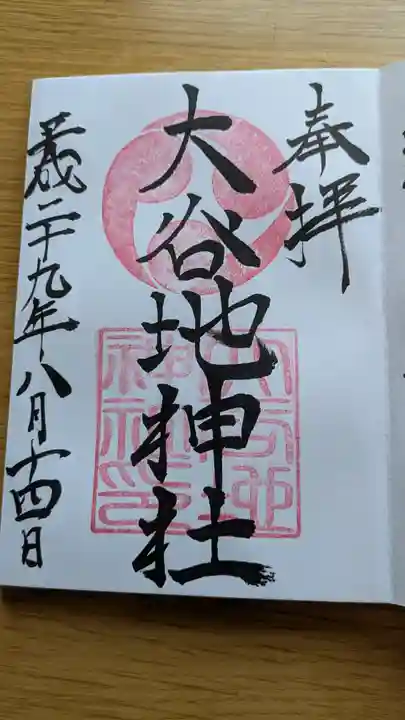 奉拝
大谷地神社
平成二十九年八月十四日
大谷地
神社印